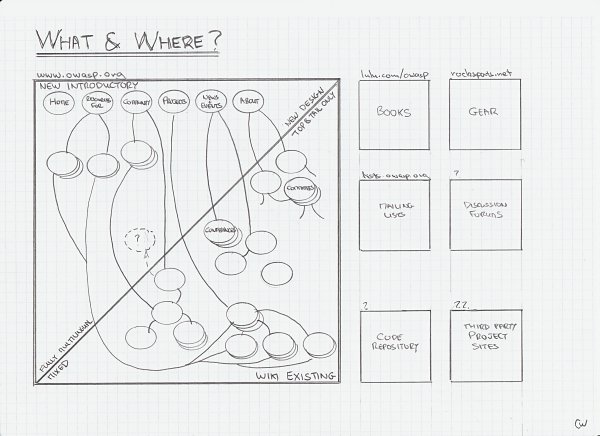 WHAT & WHERE?
www.owasp.org
NEW INTRODUCTORY
HOME
RESOURCES
FOR
COMMUNITY
PROJECTS
NEWS
EVENTS
ABOUT
NEW DESIGN
TOP & TAIL ONLY
COMMITTEES
CONFERENCES
?
FULLY
MIXED
WIKI EXISTING
lulu.com/owasp
BOOKS
rocksports.net
GEAR
lists.owasp.org
MAILING
LISTS
?
DISCUSSION
FORUMS
?
CODE
REPOSITORY
??
THIRD PARTY
PROJECT
SITES
CW